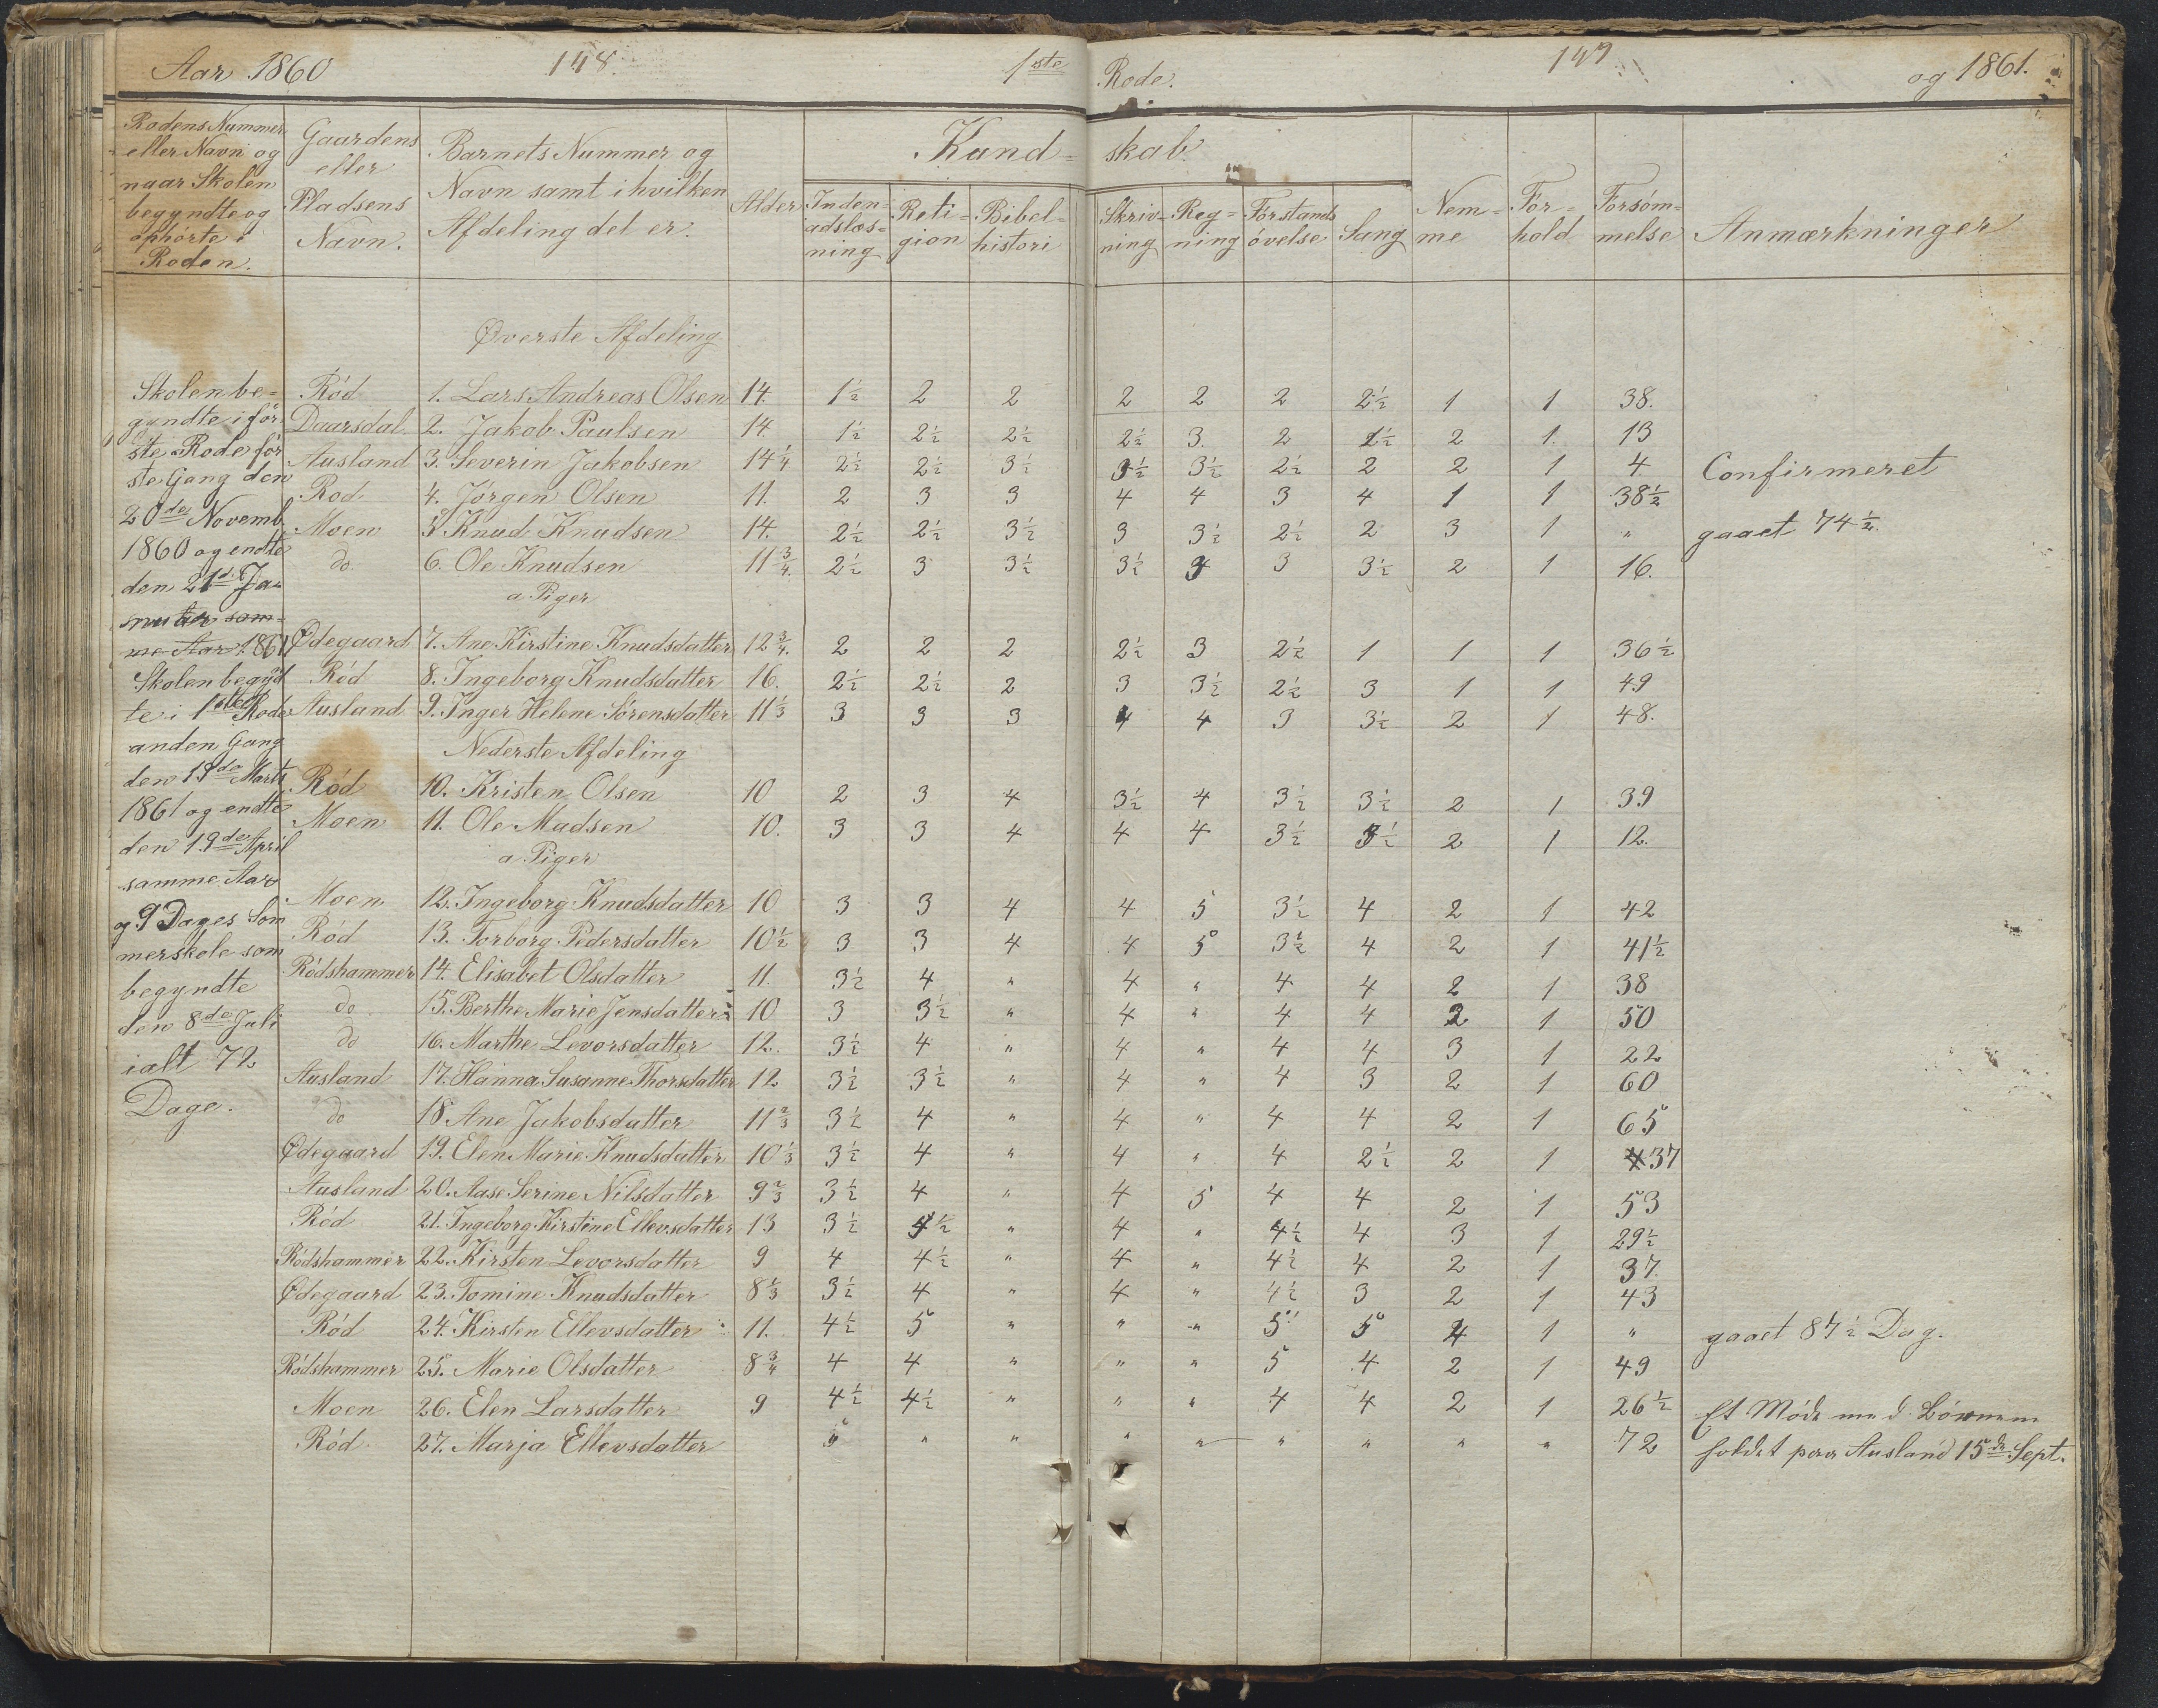 Aar 1860 148. 1ste Rode. 149 og 1861.
Rodens Nummer eller Navn og naar Skolen begyndte og ophørte i Roden.
Gaardens eller Pladsens Navn.
Barnets Nummer og Navn samt i hvilken Afdeling det er.
Alder
Kund- skab.
Inden- adslæs- ning
Reli- gion
Bibel- histori
Skriv- ning
Reg- ning
Forstands øvelse
Sang
Nem- me
For- hold
Forsøm- melse
Anmærkninger
Skolen be-
gyndte i før-
ste Rode før
ste Gang den
20de Novemb.
1860 og endte
den 21de Ja-
nuar sam-
me Aar 1861
Skolen begyd
te i 1ste Rode
anden Gang
den 19de Marts
1861 og endte
den 19de April
samme Aar
og 9 Dages Som
merskole som
begyndte
den 8de Juli
ialt 72
Dage.
Øverste Afdeling
Rød 1. Lars Andreas Olsen 14 1½ 2 2 2 2 2 2½ 1 1 38.
Daarsdal 2. Jakob Paulsen 14. 1½ 2½ 2½ 2½ 3. 2 1½ 2 1. 13
Ausland 3. Severin Jakobsen 14¼ 2½ 2½ 3½ 3½ 3½ 2½ 2 2 1 4 Confirmeret
Rod 4. Jørgen Olsen 11. 2 3 3 4 4 3 4 1 1 38½
Moen 5 Knud Knudsen 14. 2½ 2½ 3½ 3 3½ 2½ 2 3 1 " gaaet 74½.
do. 6. Ole Knudsen 11¾. 2½ 3 3½ 3½ 4 3 3½ 2 1 16.
a Piger
Ødegaard 7. Ane Kirstine Knudsdatter 12¾. 2 2 2 2½ 3 2½ 1 1 1 36½
Rød 8. Ingeborg Knudsdatter 16. 2½ 2½ 2 3 3½ 2½ 3 1 1 49
Ausland 9. Inger Helene Sørensdatter 11⅓ 3 3 3 4 4 3 3½ 2 1 48.
Nederste Afdeling
Rød 10. Kristen Olsen 10 2 3 4 3½ 4 3½ 3½ 2 1 39
Moen 11. Ole Madsen 10. 3 3 4 4 4 3½ 3½ 2 1 12.
a Piger
Moen 12. Ingeborg Knudsdatter 10 3 3 4 4 5 3½ 4 2 1 42
Rød 13. Torborg Pedersdatter 10½ 3 3 4 4 5 3½ 4 2 1 41½
Rødshammer 14. Elisabet Olsdatter 11. 3½ 4 " 4 " 4 4 2 1 38
do 15. Berthe Marie Jensdatter 10 3 3½ " 4 " 4 4 2 1 50
do 16. Marthe Levorsdatter 12. 3½ 4 " 4 " 4 4 3 1 22
Ausland 17. Hanna Susanne Thorsdatter 12 3½ 3½ " 4 " 4 3 2 1 60
do 18. Ane Jakobsdatter 11⅔ 3½ 4 " 4 " 4 4 2 1 65
Ødegaard 19. Elen Marie Knudsdatter 10⅓ 3½ 4 " 4 " 4 2½ 2 1 37
Ausland 20. Aase Serine Nilsdatter 9⅔ 3½ 4 " 4 5 4 4 2 1 53
Rød 21. Ingeborg Kirstine Ellevsdatter 13 3½ 4½ " 4 " 4½ 4 3 1 29½
Rødshammer 22. Kirsten Levorsdatter 9 4 4½ " 4 " 4½ 4 2 1 37.
Ødegaard 23. Tomine Knudsdatter 8⅓ 3½ 4 " 4 " 4½ 3 2 1 43
Rød 24. Kirsten Ellevsdatter 11. 4½ 5 " " " 5 5 4 1 " gaaet 87½ Dag.
Rødshammer 25. Marie Olsdatter 8¾ 4 4 " " " 5 4 2 1 49
Moen 26. Elen Larsdatter 9 4½ 4½ " " " 4 4 2 1 26½ Et Møde med Børnene
Rød 27. Marja Ellevsdatter " " " " " " " " " 72 holdt paa Ausland 15de Sept.